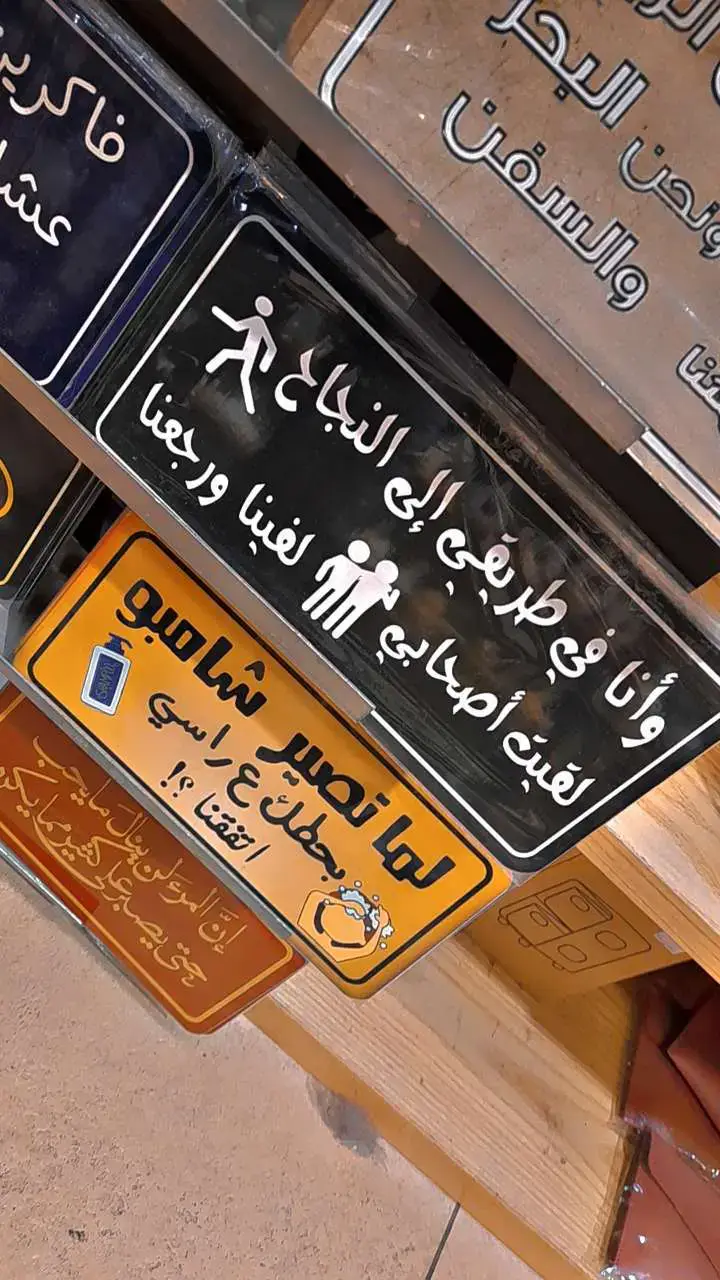 فاكرين
البحر
ونحن
والسفن
وأنا في طريقي إلى النجاح
لقيت أصحابي لفينا ورجعنا
لما تصير شامبو
بحطك ع راسي
اتفقنا ؟!
إنَّ المرءَ لن ينالَ ما يحب
حتى يصبر على كثير مما يكره